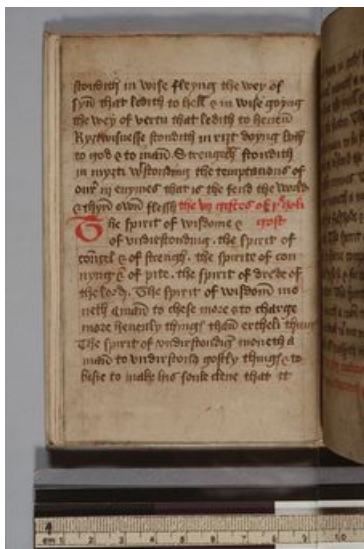 stondith in wise fleyng the wey of
syn̄ that ledith to hell & in wise goyng
the wey of vertu that ledith to heuen̄
Ryȝtwisnesse stondith in riȝt doyng both
to god & to man̄ Strength stondith
in myȝti wstonding the temptacions of
our iij enymes that is the fend the world
& thyn̄ own̄ flessh the vij giftes of þe holi
The spirit of wisdome & gost
of vndirstonding . the spirit of
counsel & of strength . the spirite of con
nyng & of pite . the spirit of drede of
the lord . The spirit of wisdom̄ mo
neth a man̄ to chese more & to charge
more heuenly thyngs than̄ ertheli thyngs
The spirit of vndirstonding moneth a
man̄ to vndirstond gostly thyngs & to
bisie to make his soule clene that it
4
cm 1 2 3 4 5 6 7 8 9 10